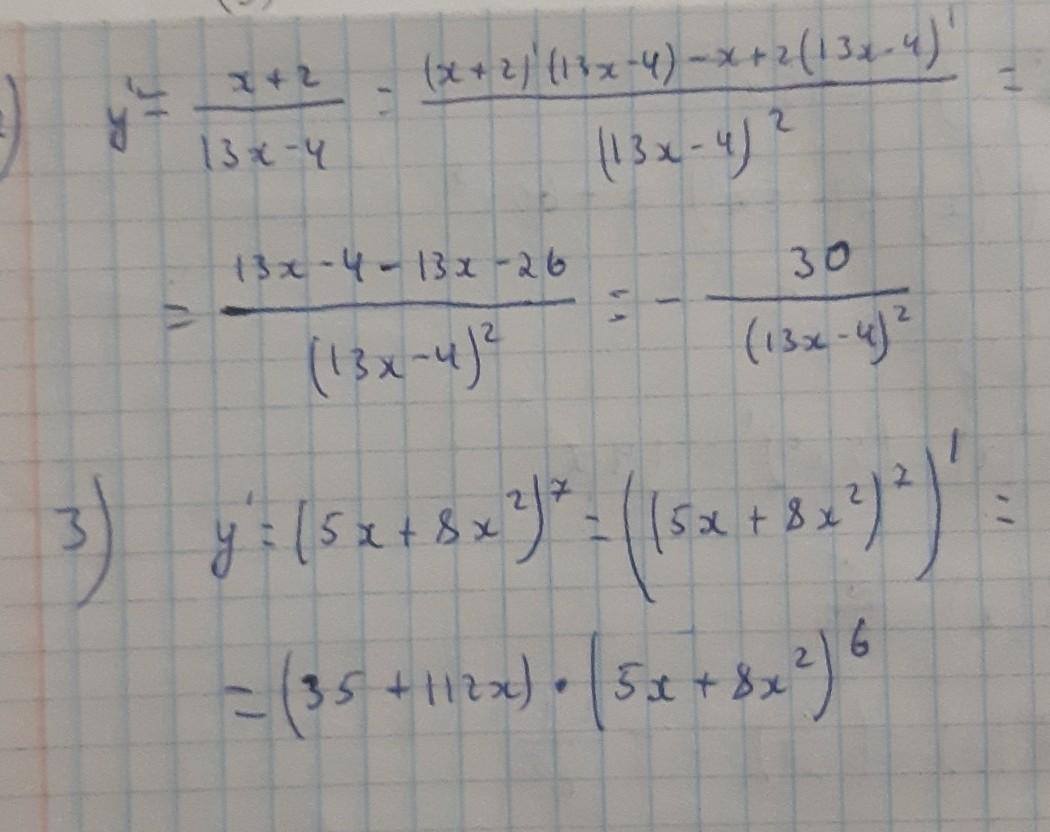 2) y' = \frac{x+2}{13x-4} = \frac{(x+2)'(13x-4)-x+2(13x-4)'}{(13x-4)^2} =
= \frac{13x-4-13x-26}{(13x-4)^2} = -\frac{30}{(13x-4)^2}
3) y' = (5x+8x^2)^7 = ((5x+8x^2)^7)' =
= (35+112x)·(5x+8x^2)^6